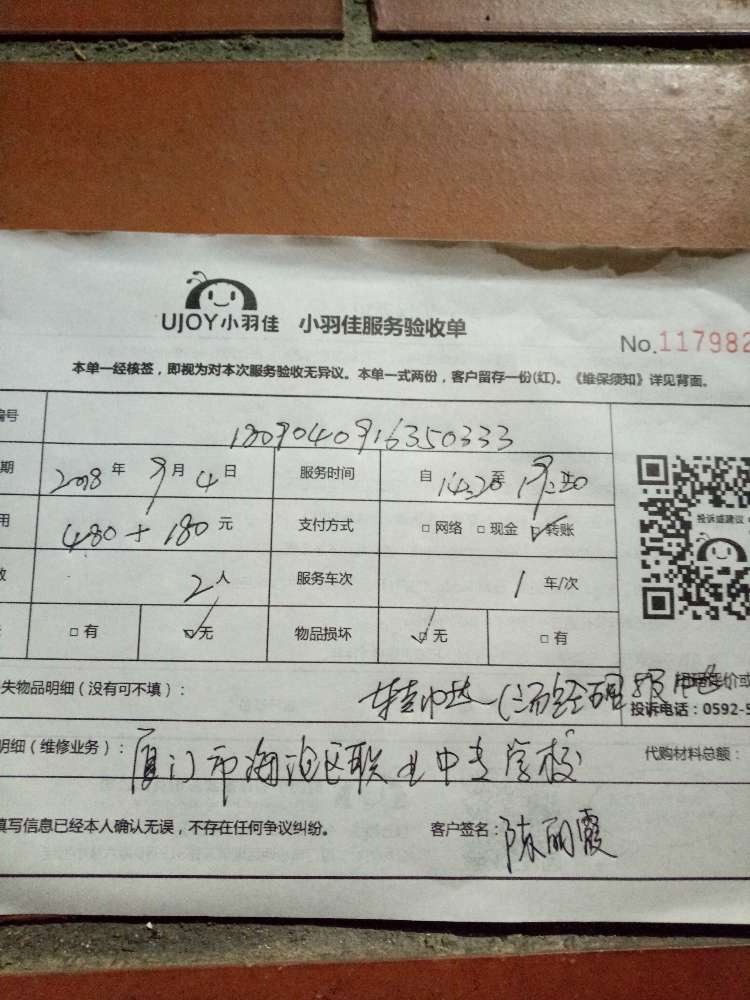 UJOY小羽佳 小羽佳服务验收单
No.117982
本单一经核签，即视为对本次服务验收无异议。本单一式两份，客户留存一份(红)。《维保须知》详见背面。
编号 1809040916350333
期 2018年9月4日 服务时间 自14:20至
用 480+180元 支付方式 □网络 □现金 ☑转账
投诉或建议
2人 服务车次 1车/次
□有 ☑无 物品损坏 ☑无 □有
失物品明细（没有可不填）：
价或
投诉电话：0592-5
明细（维修业务）： 厦门市海沧区职业中专学校 代购材料总额：
填写信息已经本人确认无误，不存在任何争议纠纷。 客户签名：陈丽霞